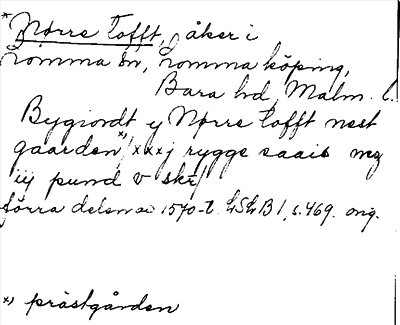 *Nørre Tofft, åker i
Lomma sn, Lomma köping,
Bara hd, Malm. l.
Bygiordt y Nørre Tofft nest
gaarden*/ xxxj rygge saais mz
iij pund v skr/
förra delen av 1570-t. LSLB 1, s. 469. orig.
*) prästgården